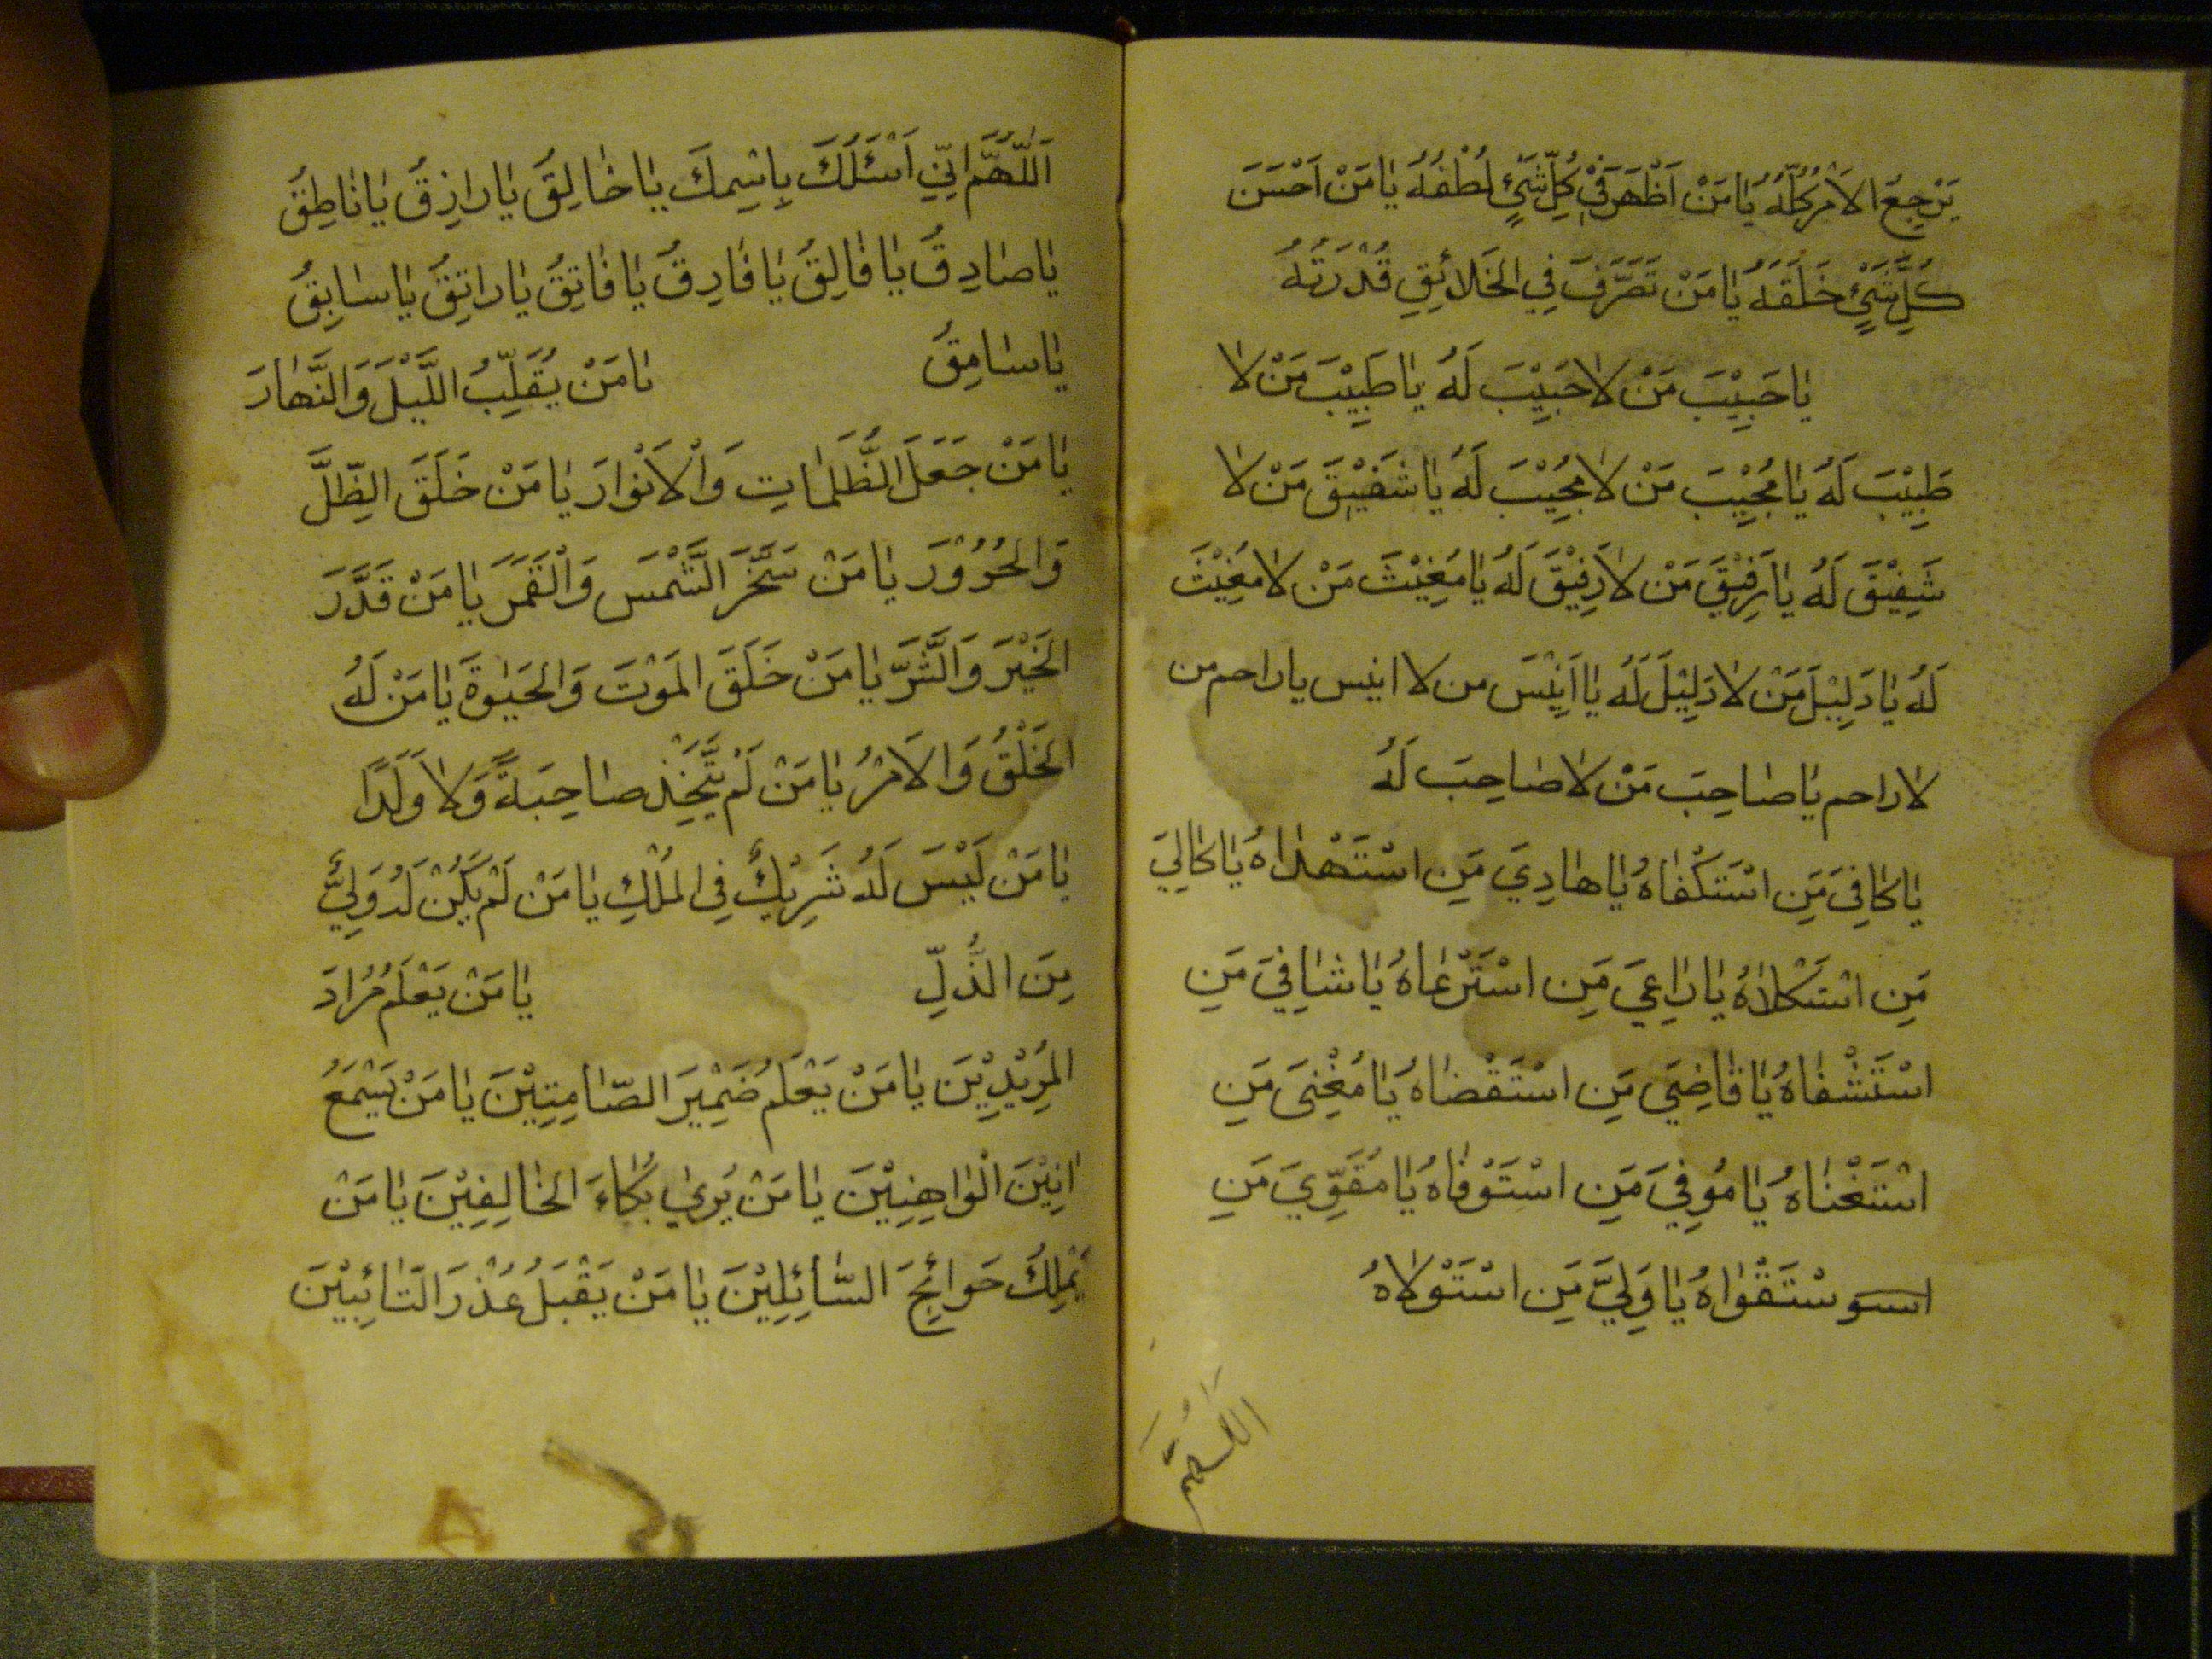 يَرْجِعُ الاَمْرُ كُلُّهُ يٰا مَنْ اَظْهَرَ فِيْ كُلِّ شَيْئٍ لُطْفُهُ يٰا مَنْ اَحْسَنَ
كُلَّ شَيْئٍ خَلَقَهُ يٰا مَنْ تَصَرَّفَ فِي الخَلائِقِ قُدْرَتُهُ
يٰا حَبِيْبَ مَنْ لاٰ حَبِيْبَ لَهُ يٰا طَبِيْبَ مَنْ لاٰ
طَبِيْبَ لَهُ يٰا مُجِيْبَ مَنْ لاٰ مُجِيْبَ لَهُ يٰا شَفِيْقَ مَنْ لاٰ
شَفِيْقَ لَهُ يٰا رَفِيْقَ مَنْ لاٰ رَفِيْقَ لَهُ يٰا مُغِيْثَ مَنْ لاٰ مُغِيْثَ
لَهُ يٰا دَلِيْلَ مَنْ لاٰ دَلِيْلَ لَهُ يٰا اَنِيْسَ من لا انيس يا راحم من
لاٰ راحم يٰا صٰاحِبَ مَنْ لاٰ صٰاحِبَ لَهُ
يٰا كٰافِيَ مَنِ اسْتَكْفٰاهُ يٰا هٰادِيَ مَنِ اسْتَهْدٰاهُ يٰا كٰالِيَ
مَنِ اسْتَكْلاٰهُ يٰا رٰاعِيَ مَنِ اسْتَرْعٰاهُ يٰا شٰافِيَ مَنِ
اسْتَشْفٰاهُ يٰا قٰاضِيَ مَنِ اسْتَقْضٰاهُ يٰا مُغْنِيَ مَنِ
اسْتَغْنٰاهُ يٰا مُوفِيَ مَنِ اسْتَوْفٰاهُ يٰا مُقَوِّيَ مَنِ
اسْتَقْوٰاهُ يٰا وَلِيَّ مَنِ اسْتَوْلاٰهُ
اَللّٰهُمَّ
اَللّٰهُمَّ اِنِّي اَسْئَلُكَ بِاسْمِكَ يٰا خٰالِقُ يٰا رٰازِقُ يٰا نٰاطِقُ
يٰا صٰادِقُ يٰا فٰالِقُ يٰا فٰارِقُ يٰا فٰاتِقُ يٰا رٰاتِقُ يٰا سٰابِقُ
يٰا سٰامِقُ يٰا مَنْ يُقَلِّبُ اللَّيْلَ وَالنَّهٰارَ
يٰا مَنْ جَعَلَ الظُّلُمٰاتِ وَالْاَنْوٰارَ يٰا مَنْ خَلَقَ الظِّلَّ
وَالحُرُوْرَ يٰا مَنْ سَخَّرَ الشَّمْسَ وَالْقَمَرَ يٰا مَنْ قَدَّرَ
الخَيْرَ وَالشَّرَّ يٰا مَنْ خَلَقَ المَوْتَ وَالحَيٰوةَ يٰا مَنْ لَهُ
الخَلْقُ وَالاَمْرُ يٰا مَنْ لَمْ يَتَّخِذْ صٰاحِبَةً وَلاٰ وَلَدًا
يٰا مَنْ لَيْسَ لَهُ شَرِيْكٌ فِي المُلْكِ يٰا مَنْ لَمْ يَكُنْ لَهُ وَلِيٌّ
مِنَ الذُّلِّ يٰا مَنْ يَعْلَمُ مُرٰادَ
المُرِيْدِيْنَ يٰا مَنْ يَعْلَمُ ضَمِيْرَ الصّٰامِتِيْنَ يٰا مَنْ يَسْمَعُ
اَنِيْنَ الْوٰاهِنِيْنَ يٰا مَنْ يَرىٰ بُكٰاءَ الخٰالِفِيْنَ يٰا مَنْ
يَمْلِكُ حَوٰائِجَ السّٰائِلِيْنَ يٰا مَنْ يَقْبَلُ عُذْرَ التّٰائِبِيْنَ